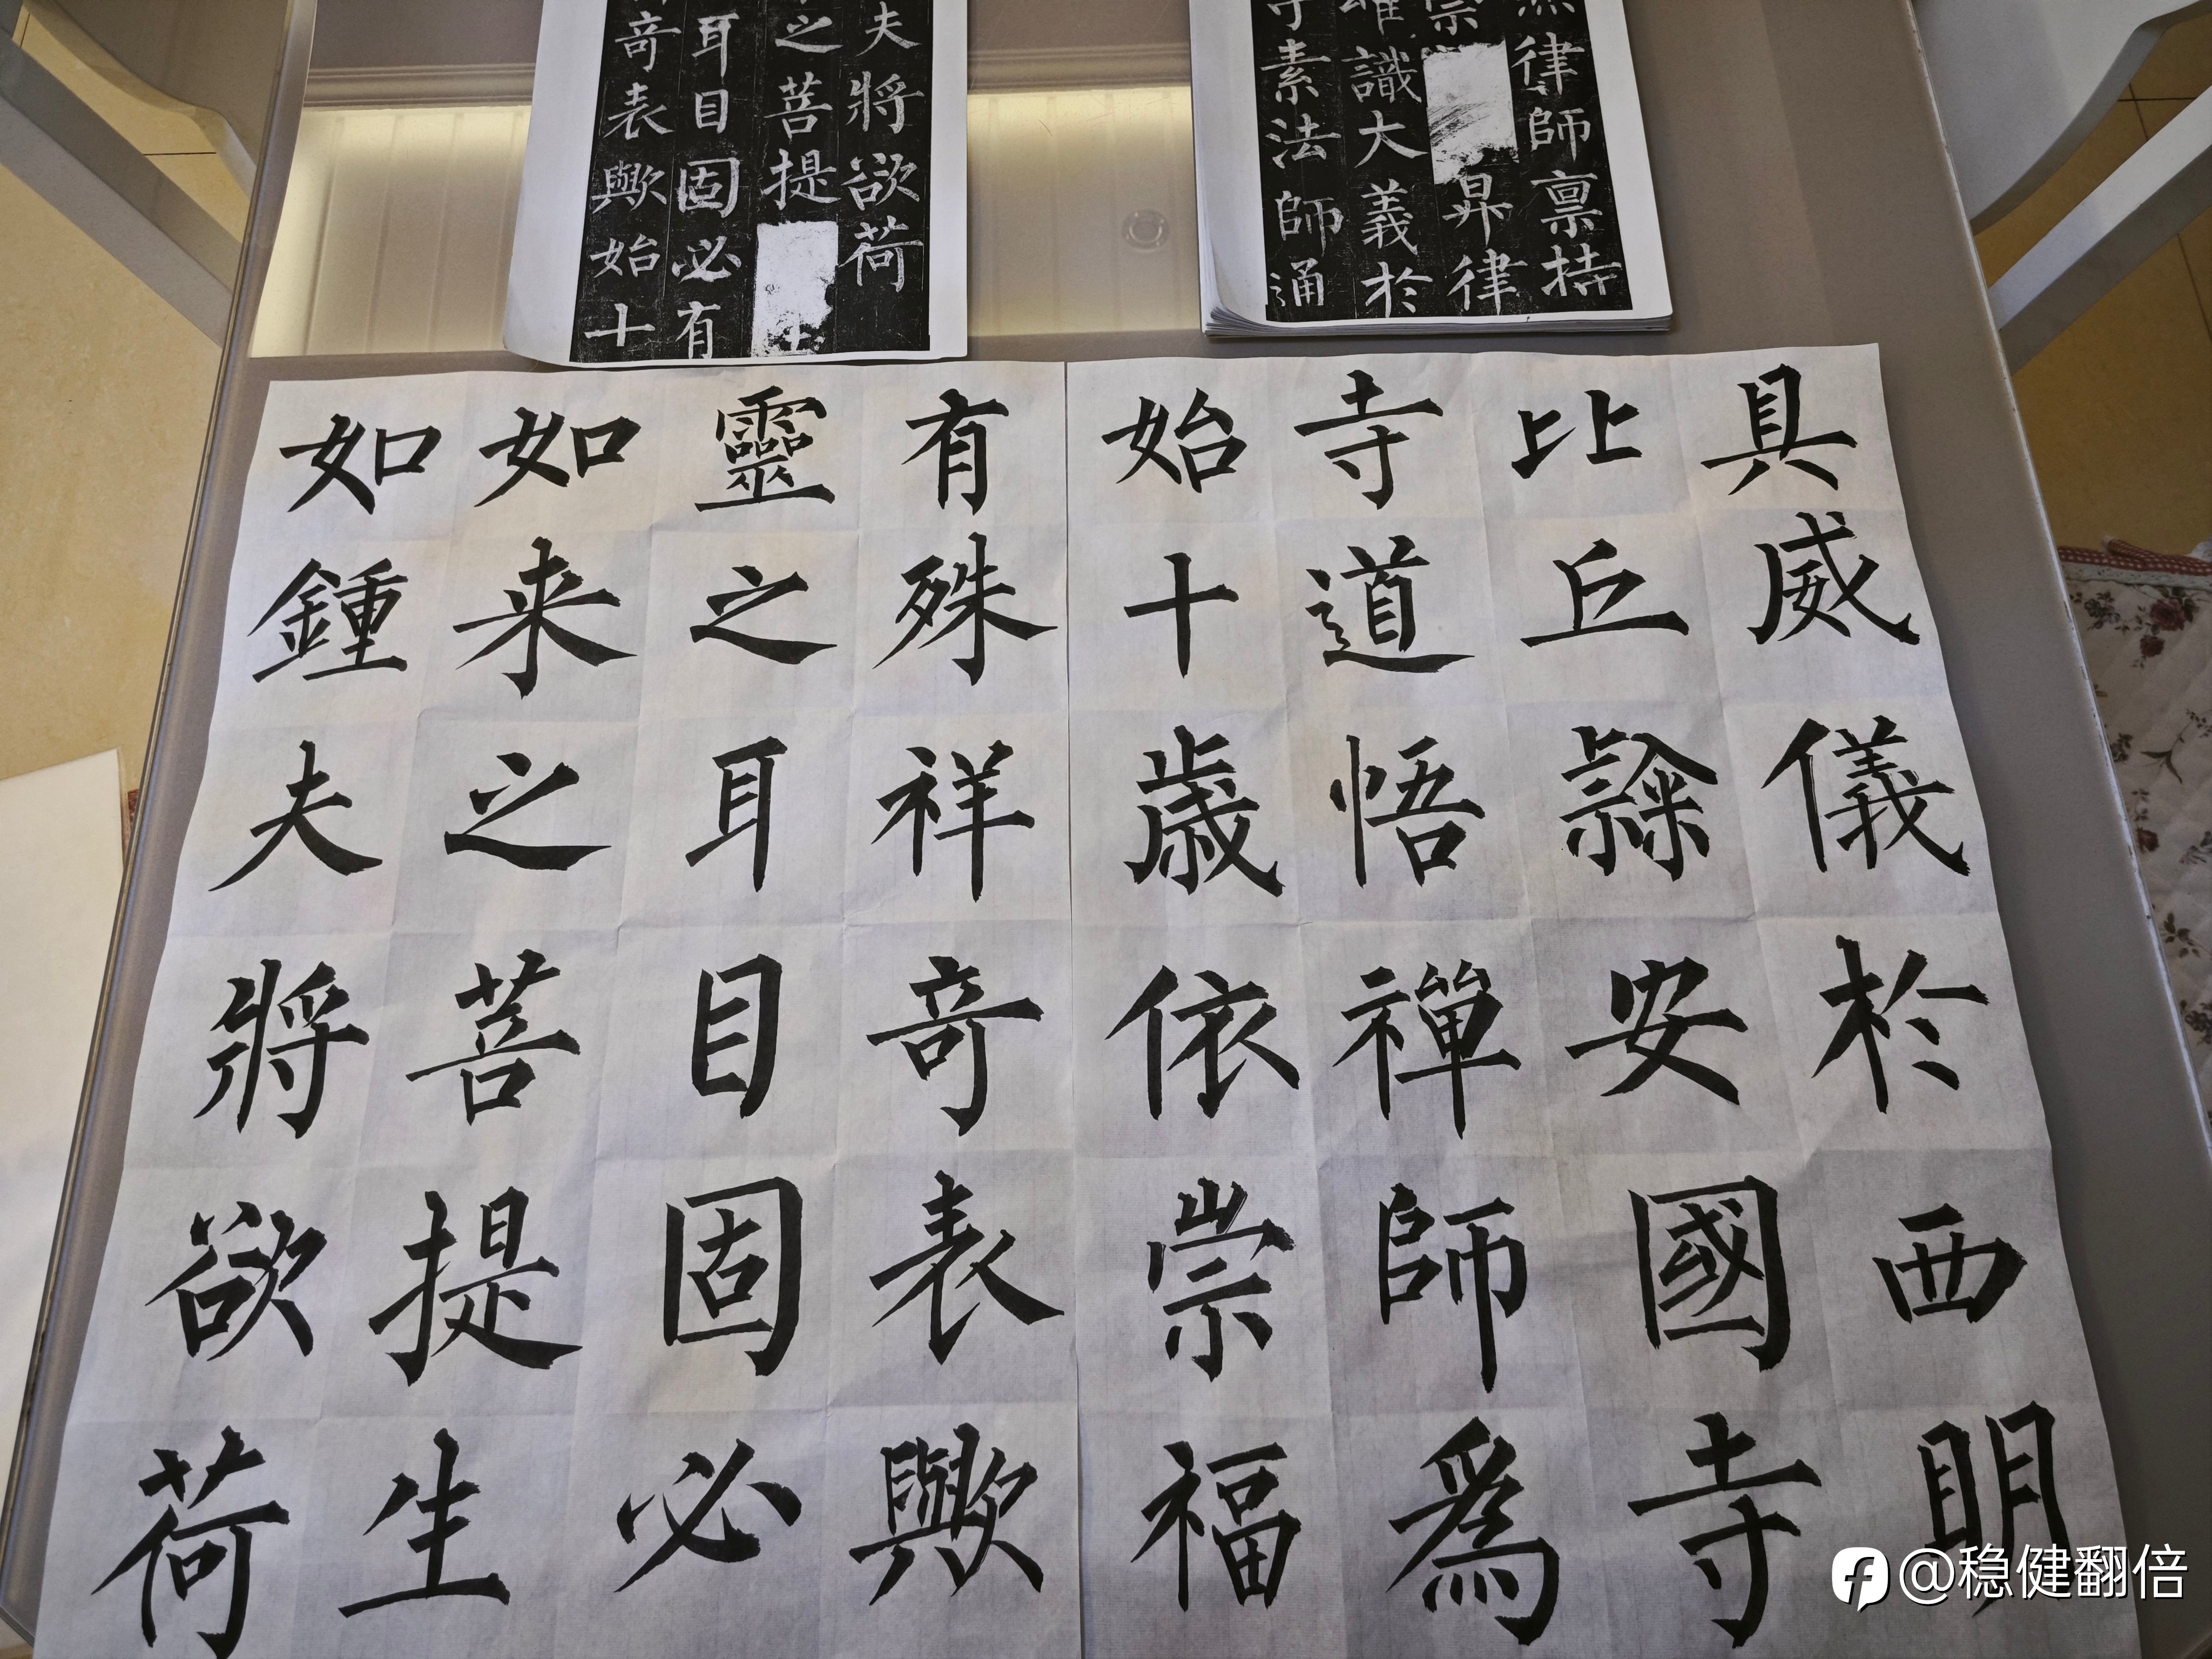 律師禀持
崇昇律
唯識大義於
寺素法師通
夫將欲荷
之菩提
耳目固必有
竒表歟始十
具威儀於西眀
比丘隸安國寺
寺道悟禪師爲
始十歲依崇福
有殊祥竒表歟
靈之耳目固必
如来之菩提生
如鍾夫將欲荷
@稳健翻倍